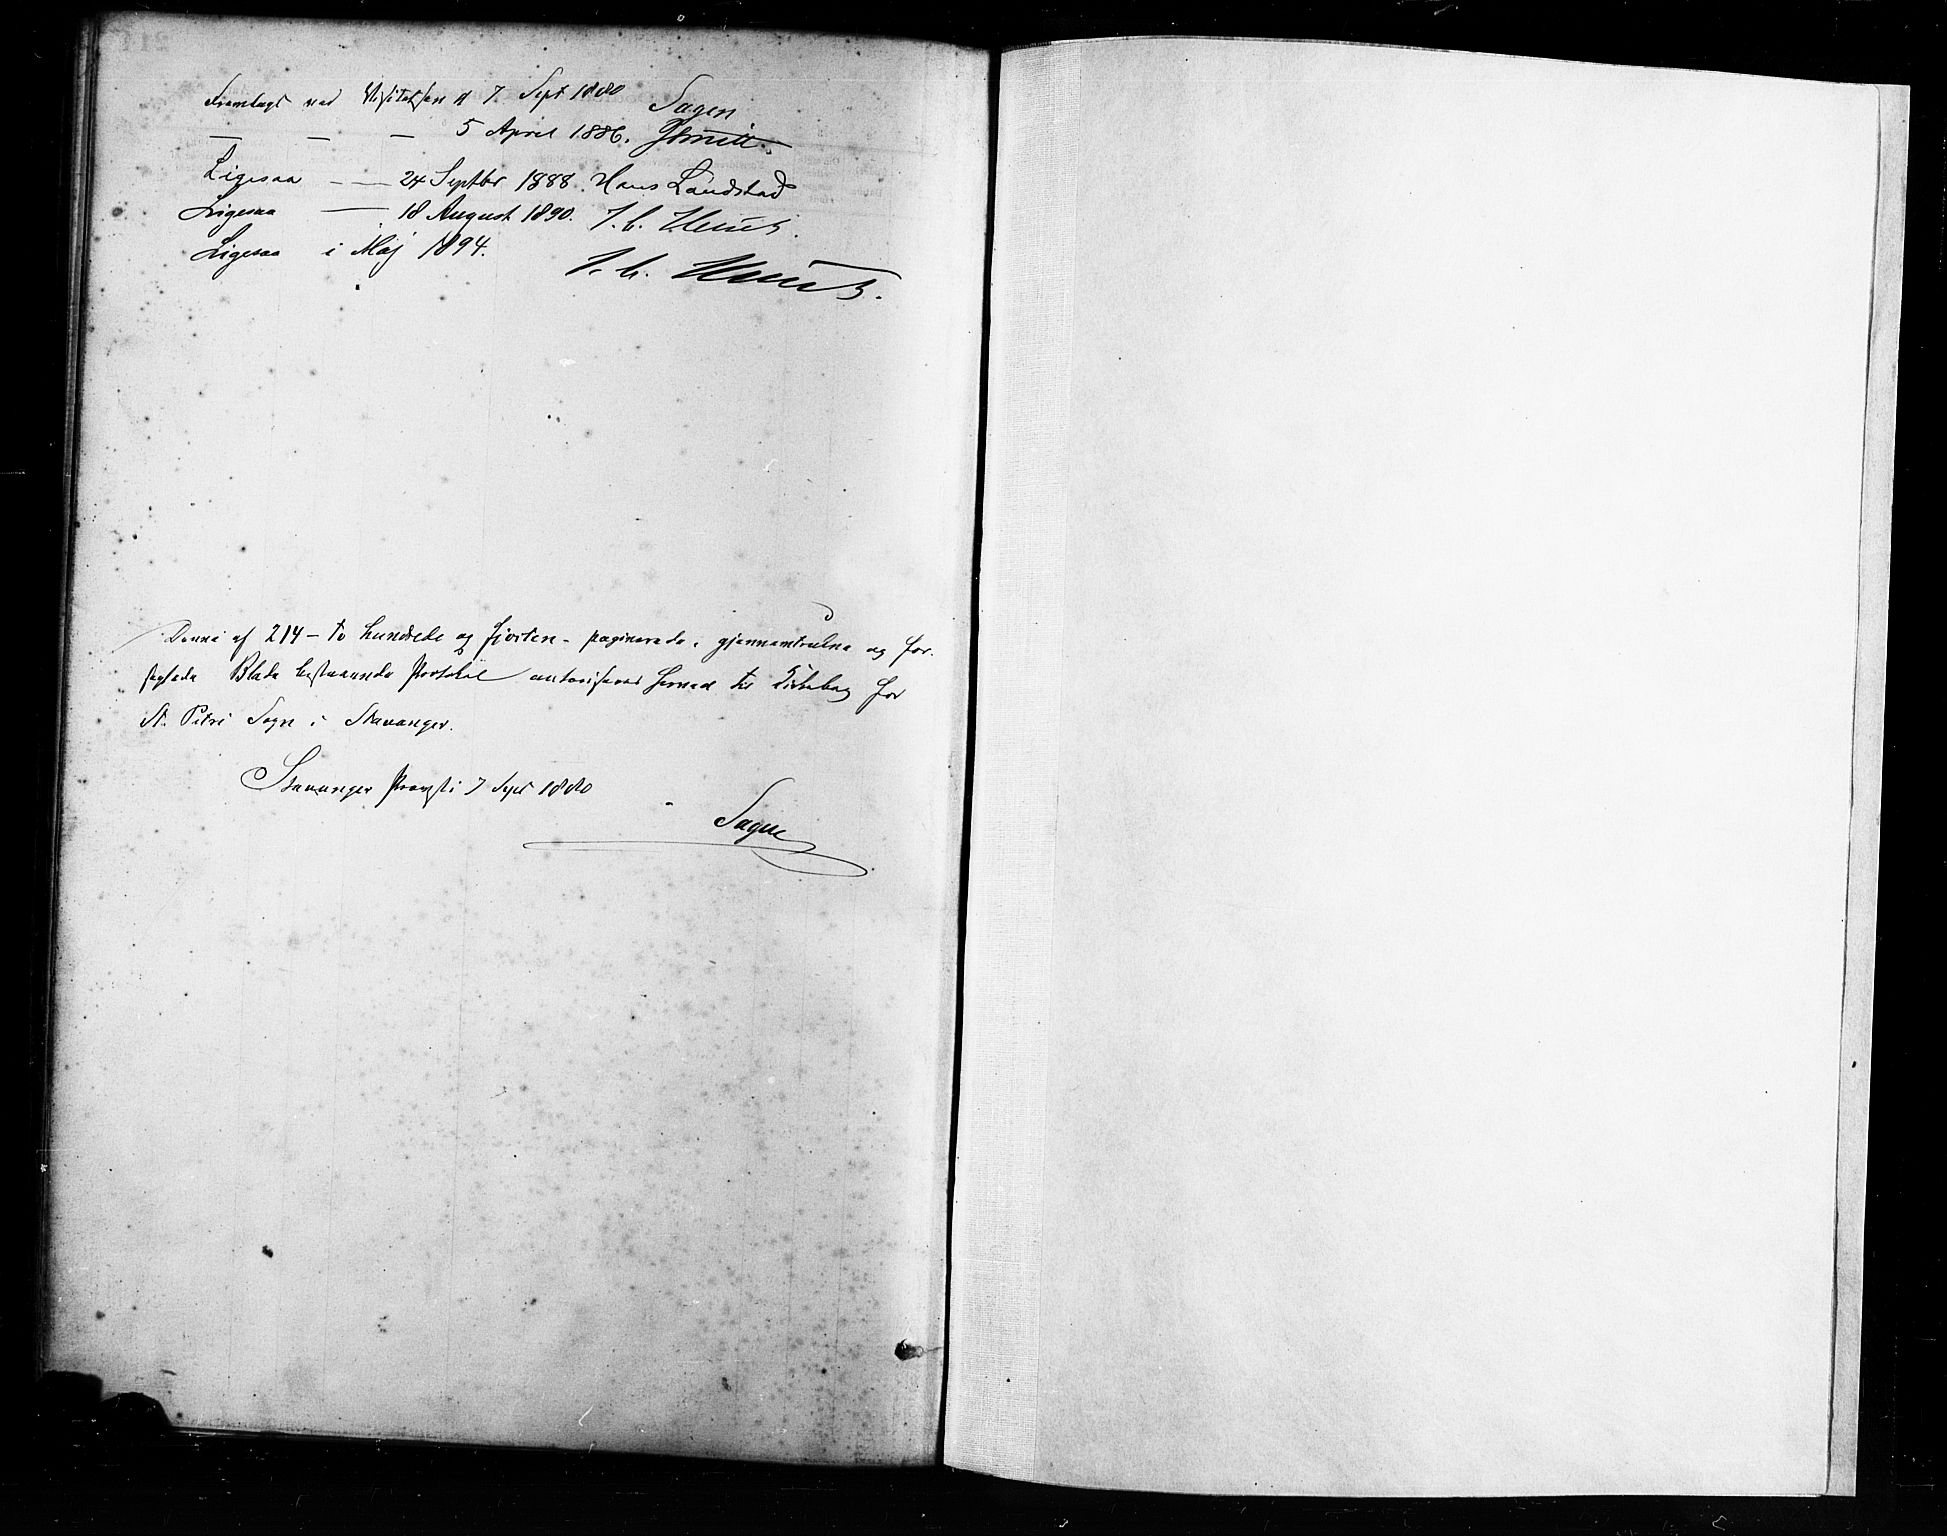 Fremlagt ved Visitatsen d 7 Sept 1880 Sagen
— — — 5 April 1886.
Ligesaa — — 24 Septbr 1888. Hans Landstad
Ligesaa — 18 August 1890. J. C.
Ligesaa i Maj 1894. J. C.
Denne af 214 – to hundrede og fjorten – paginerede, gjennemtrukne og for-
seglede Blade bestaaende Protokol autoriseres herved til Kirkebog for
St. Petri Sogn i Stavanger.
Stavanger Provsti 7 Sept 1880
Sagen